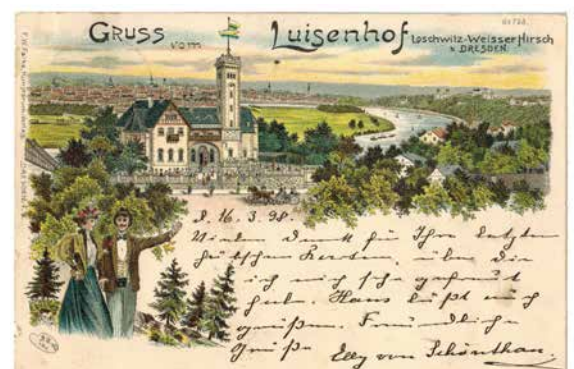 GRUSS vom Luisenhof Loschwitz-Weisser Hirsch
b. DRESDEN.
d. 16. 3. 98.
Vielen Dank für Ihre letzten
hübschen Karten, über die
ich mich sehr gefreut
habe. Hans läßt auch
grüßen. Freundliche
Grüße Elly von Schönthan.